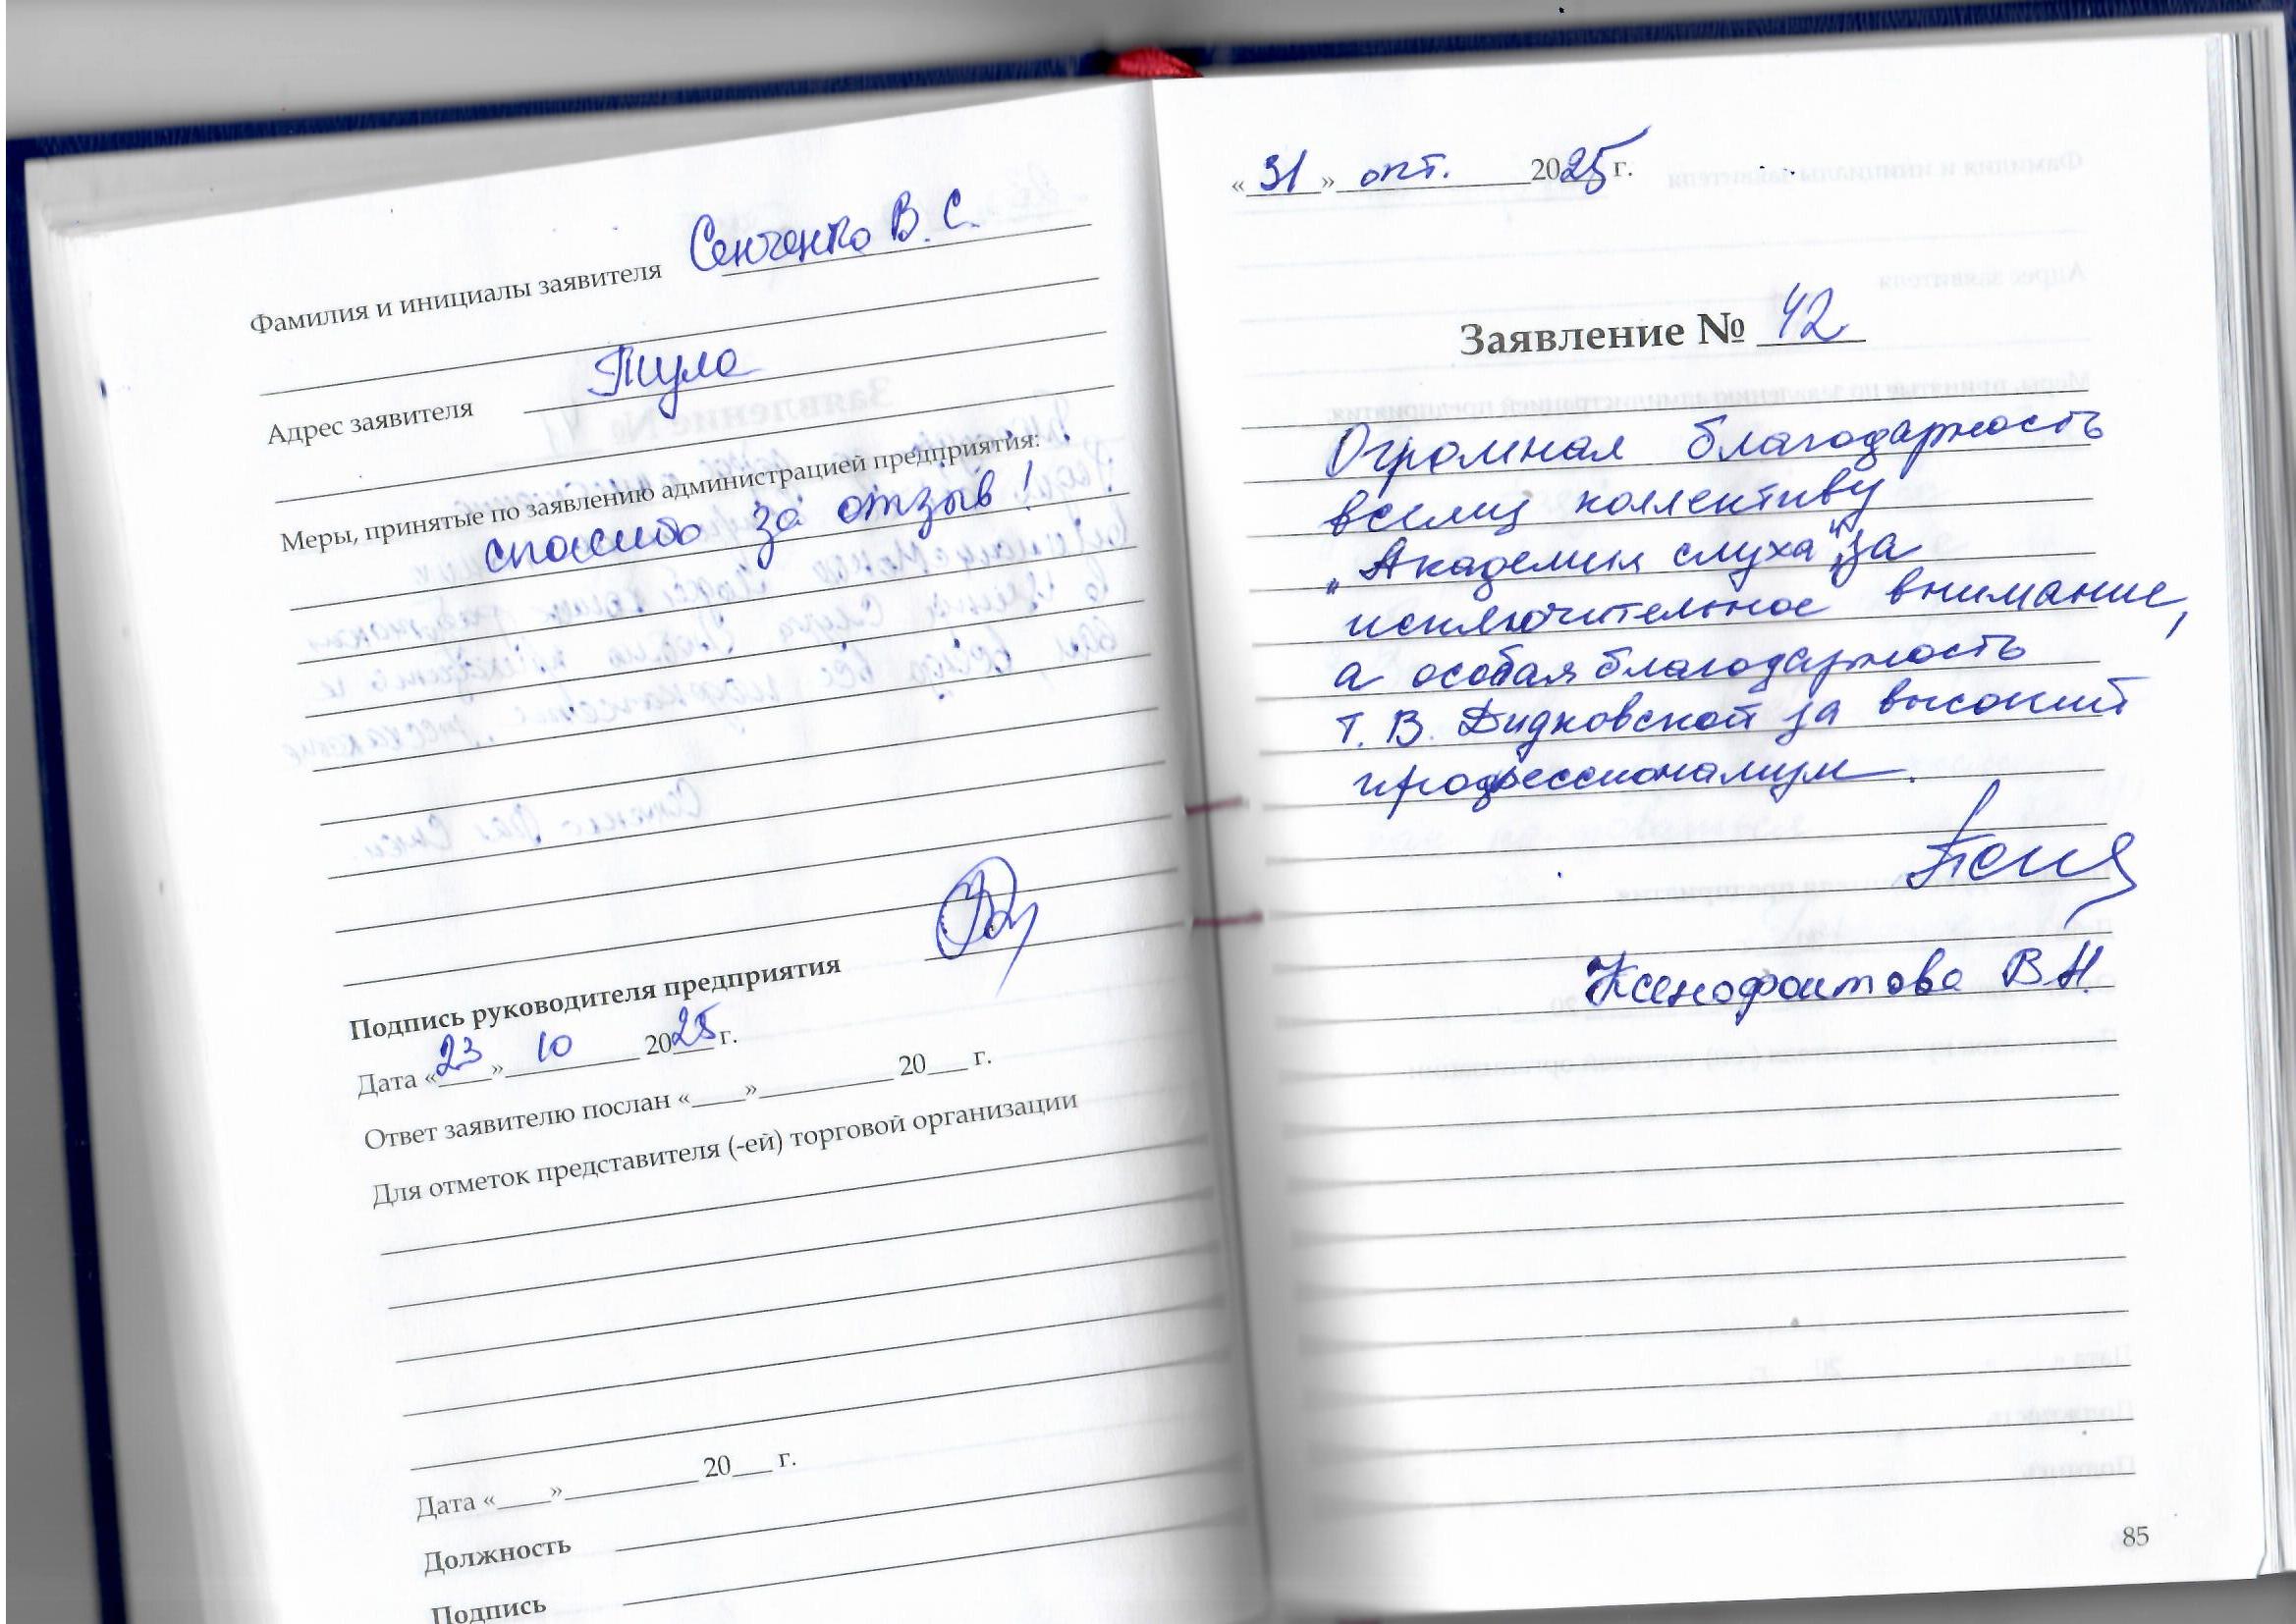 Фамилия и инициалы заявителя Сенченко В. С.
Адрес заявителя Тула
Меры, принятые по заявлению администрацией предприятия:
спасибо за отзыв!
Подпись руководителя предприятия
Дата «23» 10 2025 г.
Ответ заявителю послан «____»__________ 20___ г.
Для отметок представителя (-ей) торговой организации
Дата «____»__________ 20___ г.
Должность
Подпись
«31» окт. 2025 г.
Заявление № 42
Огромная благодарность
всему коллективу
„Академия слуха" за
исключительное внимание,
а особая благодарность
Т. В. Дидковской за высокий
профессионализм.
Ксенофонтова В.Н.
85